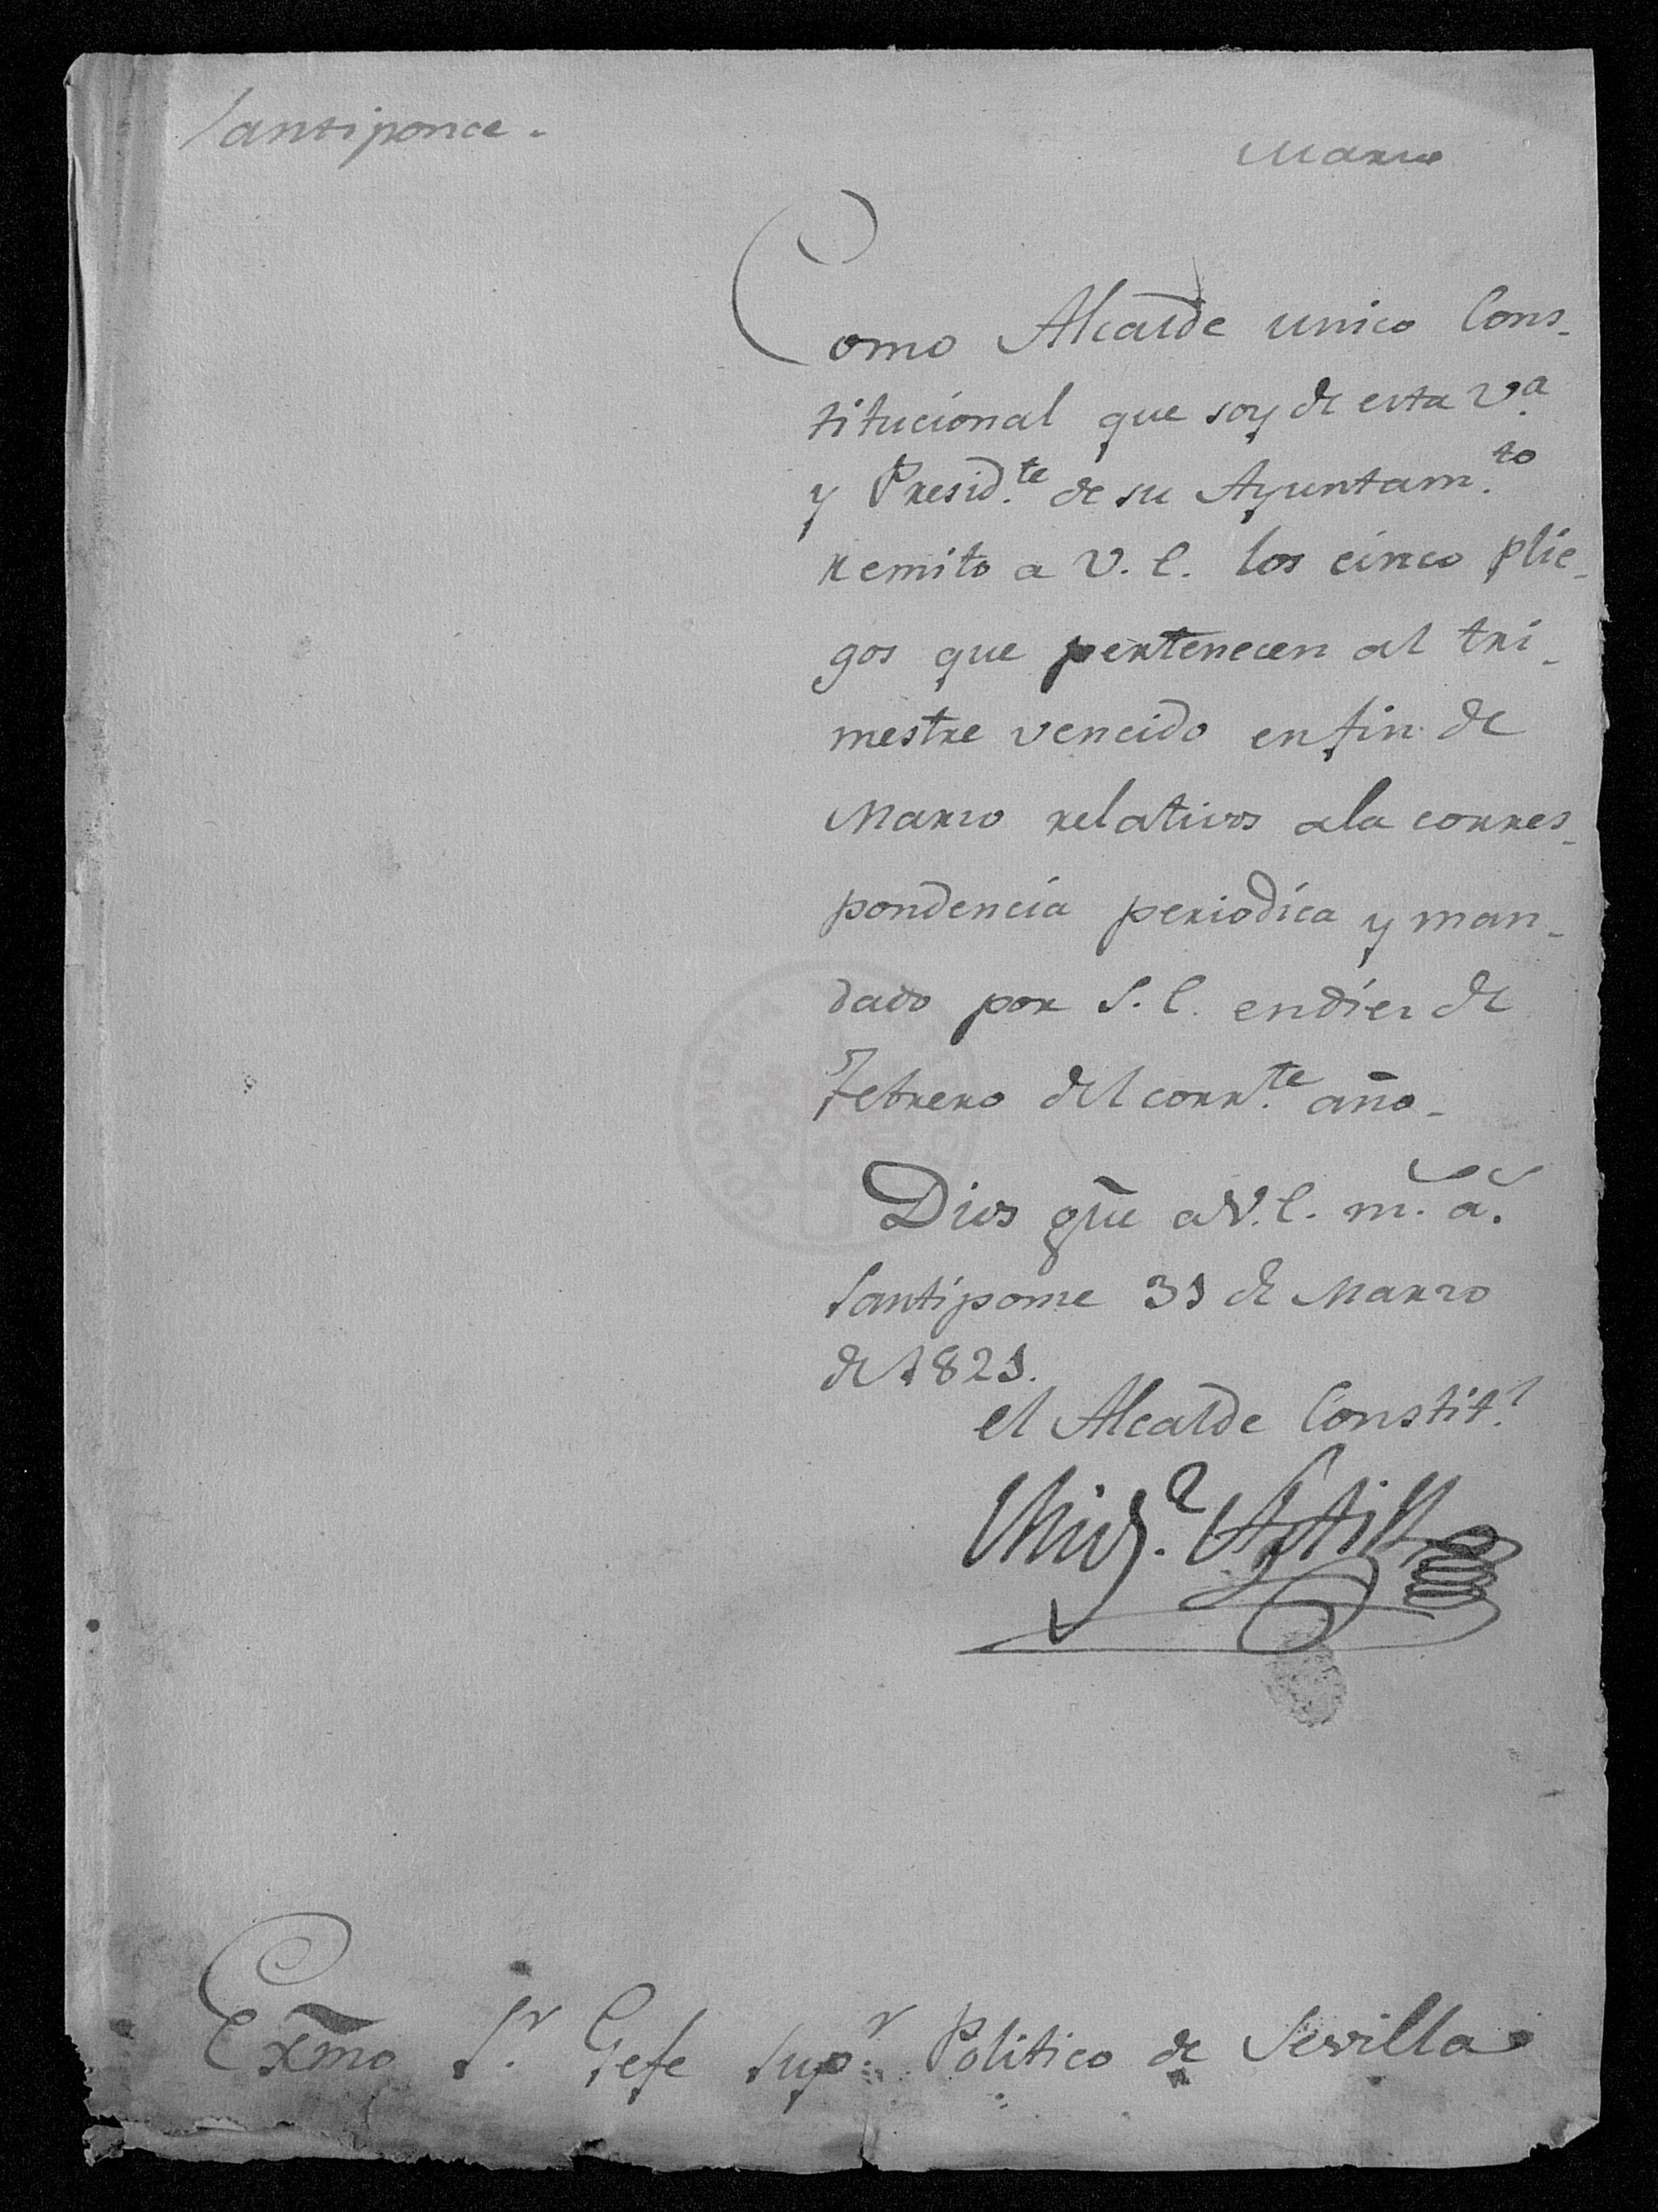 Santiponce.
Marzo
Como Alcalde unico Cons-
titucional que soy de esta V.a
y Presid.te de su Ayuntam.to
remito a V. E. los cinco plie-
gos que pertenecen al tri-
mestre vencido en fin de
Marzo relativos a la corres-
pondencia periodica y man-
dado por S. E. en diez de
Febrero del corr.te año-
Dios gue a V. E. m. a.
Santiponce 31 de Marzo
de 1821.
el Alcalde Constit.l
Mig.l
Exmo S.r Gefe Sup.r Politico de Sevilla